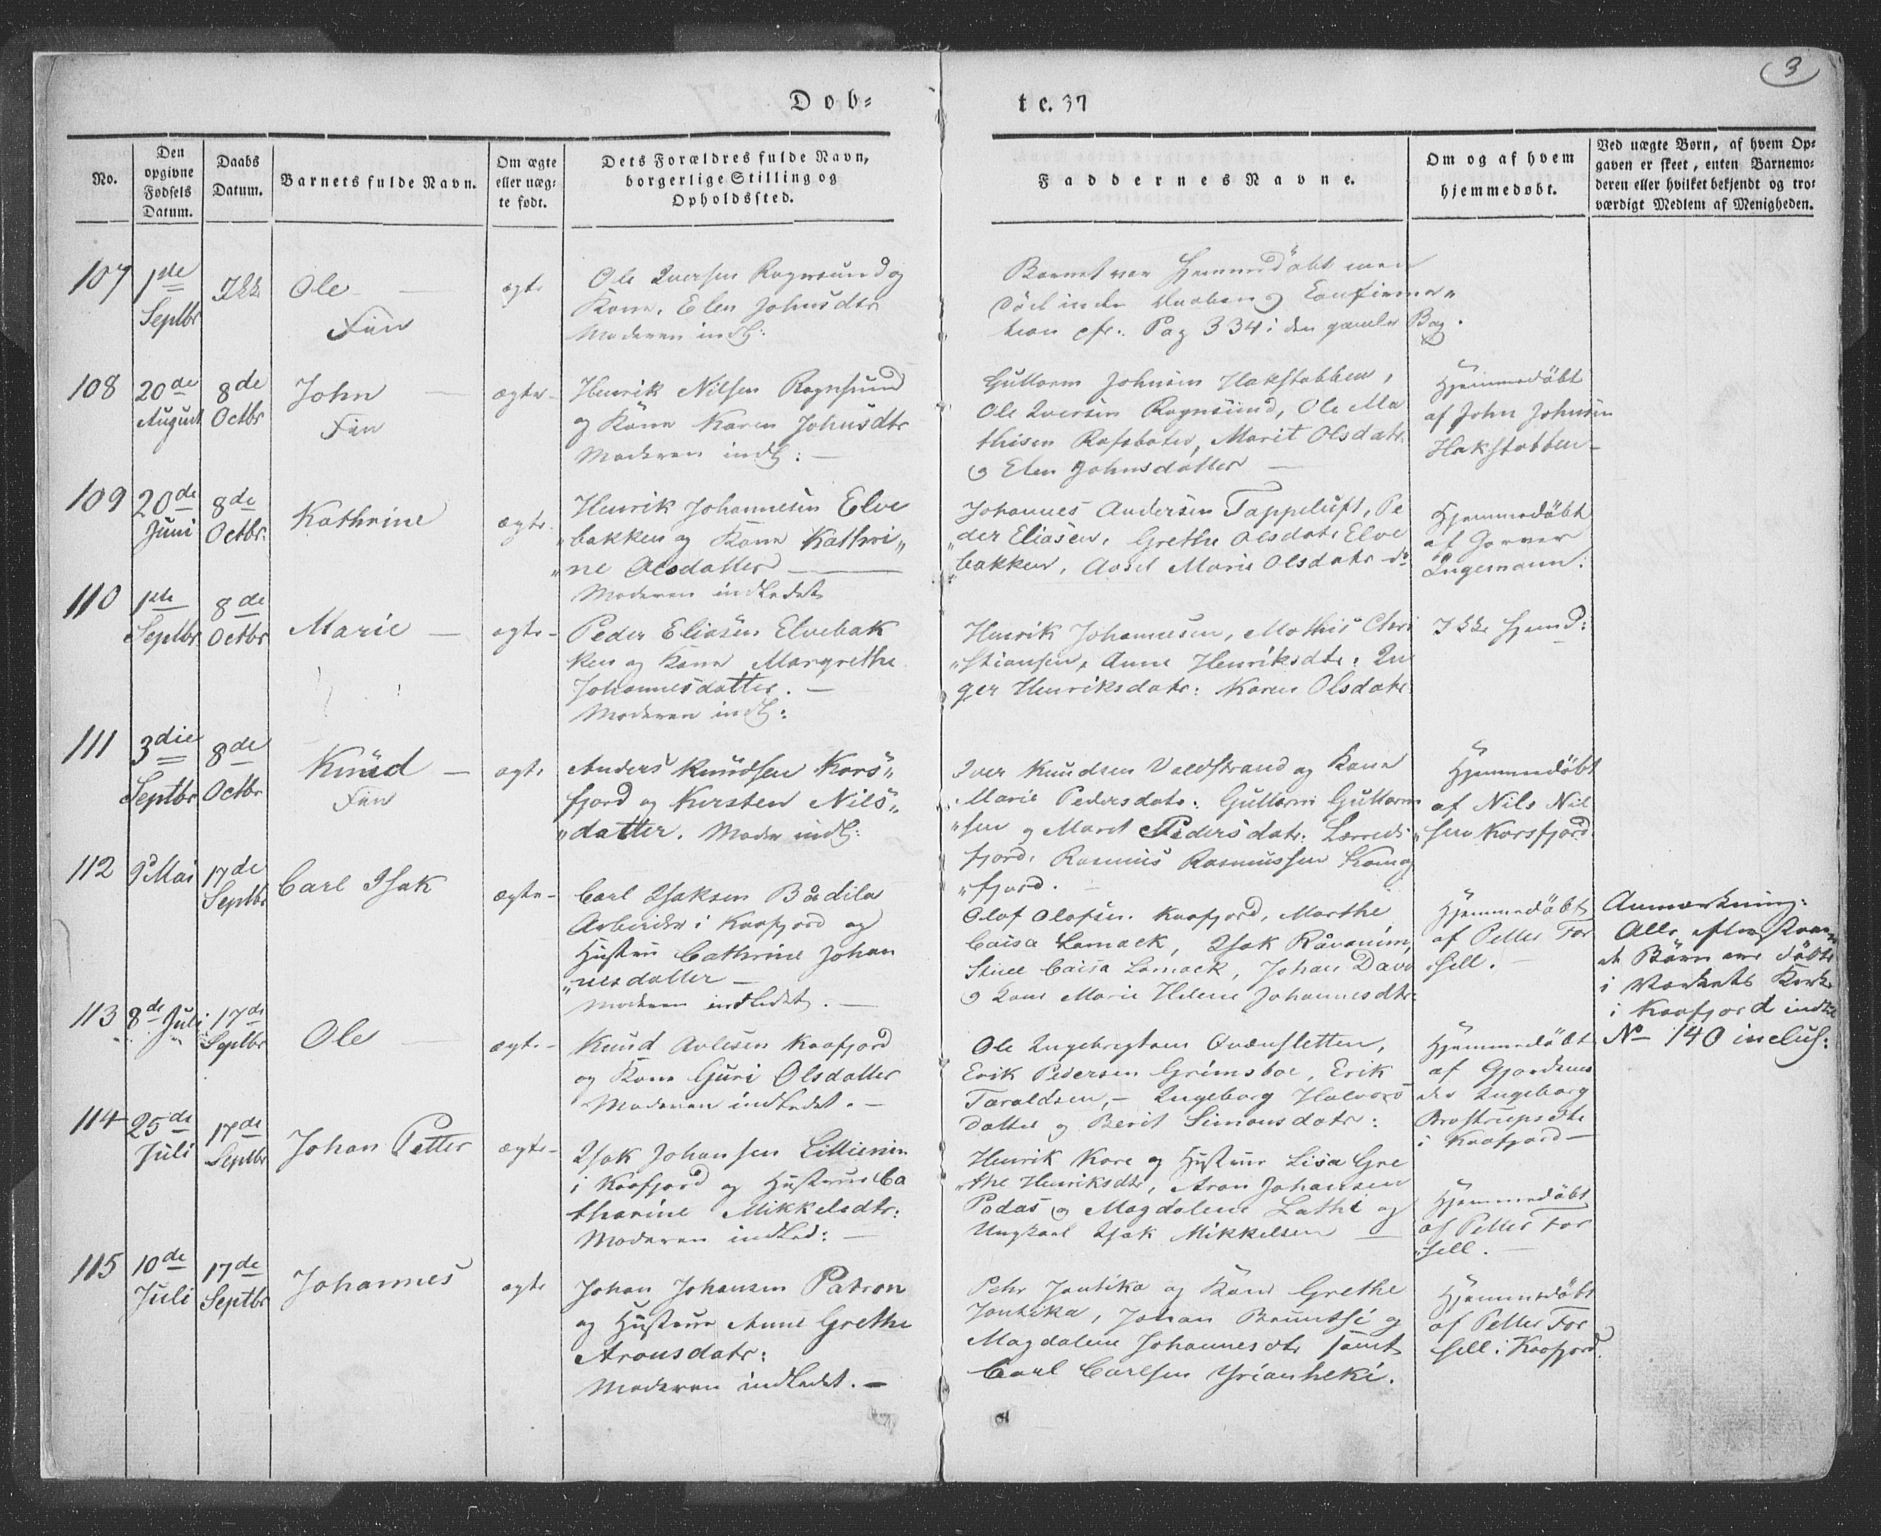 3
Døb=
te. 37
No.
Den
opgivne
Fødsels
Datum.
Daabs
Datum.
Barnets fulde Navn.
Om ægte
eller uæg-
te født.
Dets Forældres fulde Navn,
borgerlige Stilling og
Opholdssted.
Faddernes Navne.
Om og af hvem
hjemmedøbt.
Ved uægte Børn, af hvem Op-
gaven er skeet, enten Barnemo-
deren eller hvilket bekjendt og tro-
værdigt Medlem af Menigheden.
107
1ste
Septbr
Ikke
Ole
Fin
ægte
Ole Iversen Rognsund og
Kone, Elen Johnsdtr
Moderen indl:
Barnet var Hjemmedøbt men
død inden Daaben og Confirma
tion cfr. Pag 334 i den gamle Bog.
108
20de
August
8de
Octbr
John
Fin
ægte
Henrik Nilsen Rognsund
og Kone Karen Johnsdtr
Moderen indl:
Guttorm Johnsen Hakstabben,
Ole Iversen Rognsund, Ole Ma
thisen Marit Olsdatr
og Elen Johnsdatter
Hjemmedøbt
af John Johnsen
Hakstabben
109
20de
Juni
8de
Octbr.
Kathrine
ægte
Henrik Johannesen Elve
bakken og Kone Kathri
ne Olsdatter
Moderen indledet
Johannes Andersen Tappeluft, Pe
der Eliasen, Grethe Olsdatr Elve
bakken, Marie Olsdatr do
Hjemmedøbt
af
Ingemann.
110
1ste
Septbr
8de
Octbr
Marie
ægte
Peder Eliasen Elvebak
ken og Kone Margrethe
Johannesdatter.
Moderen indl:
Henrik Johannesen, Mathis Chri
stiansen, Anne Henriksdtr, In
ger Henriksdatr: Karen Olsdatr
Ikke Hjemd:
111
3die
Septbr
8de
Octbr
Knud
Fin
ægte
Anders Knudsen Kors
fjord og Kirsten Nils
datter. Moder indl:
Iver Knudsen Valdstrand og Kone
Marie Pedersdatr: Guttorm Guttorm
sen og Maret Pedersdatr. Lerreds
fjord, Rasmus Rasmussen Komag
fjord.
Hjemmedøbt
af Nils Nil
sen Korsfjord
112
9 Mai
17de
Septbr
Carl Isak
ægte
Carl Isaksen Bædila
Arbeider i Kaafjord og
Hustru Cathrine Johan
nesdatter
Moderen indledet.
Olof Olofsen Kaafjord, Marthe
Caisa Lomack, Isak Råvanim,
Stine Caisa Lomack, Johan Dave
og Kone Marie Helene Johannesdtr.
Hjemmedøbt
af Petter For
sell.
Anmærkning:
Alle efterstaaen
de Børn ere døbte
i Værkets Kirke
i Kaafjord indtil
No 140 inclus:
113
8de Juli
17de
Septbr
Ole
ægte
Knud Avlesen Kaafjord
og Kone Guri Olsdatter
Moderen indledet.
Ole Ingebrigtsen Qvænsletten,
Erik Pedersen Grimsboe, Erik
Taraldsen, Ingeborg Halvors
datter og Berit Simonsdatr:
Hjemmedøbt
af Gjordemo
der Ingeborg
Brostrupsdtr
i Kaafjord
114
25de
Juli
17de
Septbr
Johan Petter
ægte
Isak Johansen Lillienim
i Kaafjord og Hustrue Ca
tharine Mikkelsdtr:
Moderen indled:
Henrik Kare og Hustrue Lisa Gre
the Henriksdtr, Aron Johansen
Padas og Magdalene Lathi og
Ungkarl Isak Mikkelsen
Hjemmedøbt
af Petter For
sell.
115
10de
Juli
17de
Septbr
Johannes
ægte
Johan Johansen Patron
og Hustrue Anne Grethe
Aronsdatr:
Moderen indledet.
Pehr Jontika og Kone Grethe
Jontika, Johan Bruntsi og
Magdalene Johannesdtr samt
Carl Carlsen Yrianheki.
Hjemmedøbt
af Petter For
sell i Kaafjord.